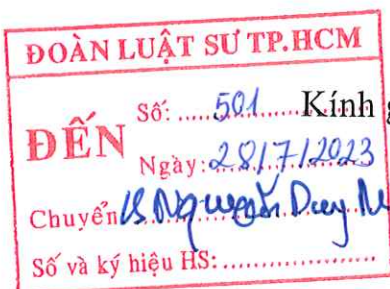 ĐOÀN LUẬT SƯ TP.HCM
ĐẾN
Số: ..... 501 ......... Kính
Ngày: 28/7/2023
Chuyển LS Nguyễn Duy
Số và ký hiệu HS: ...................